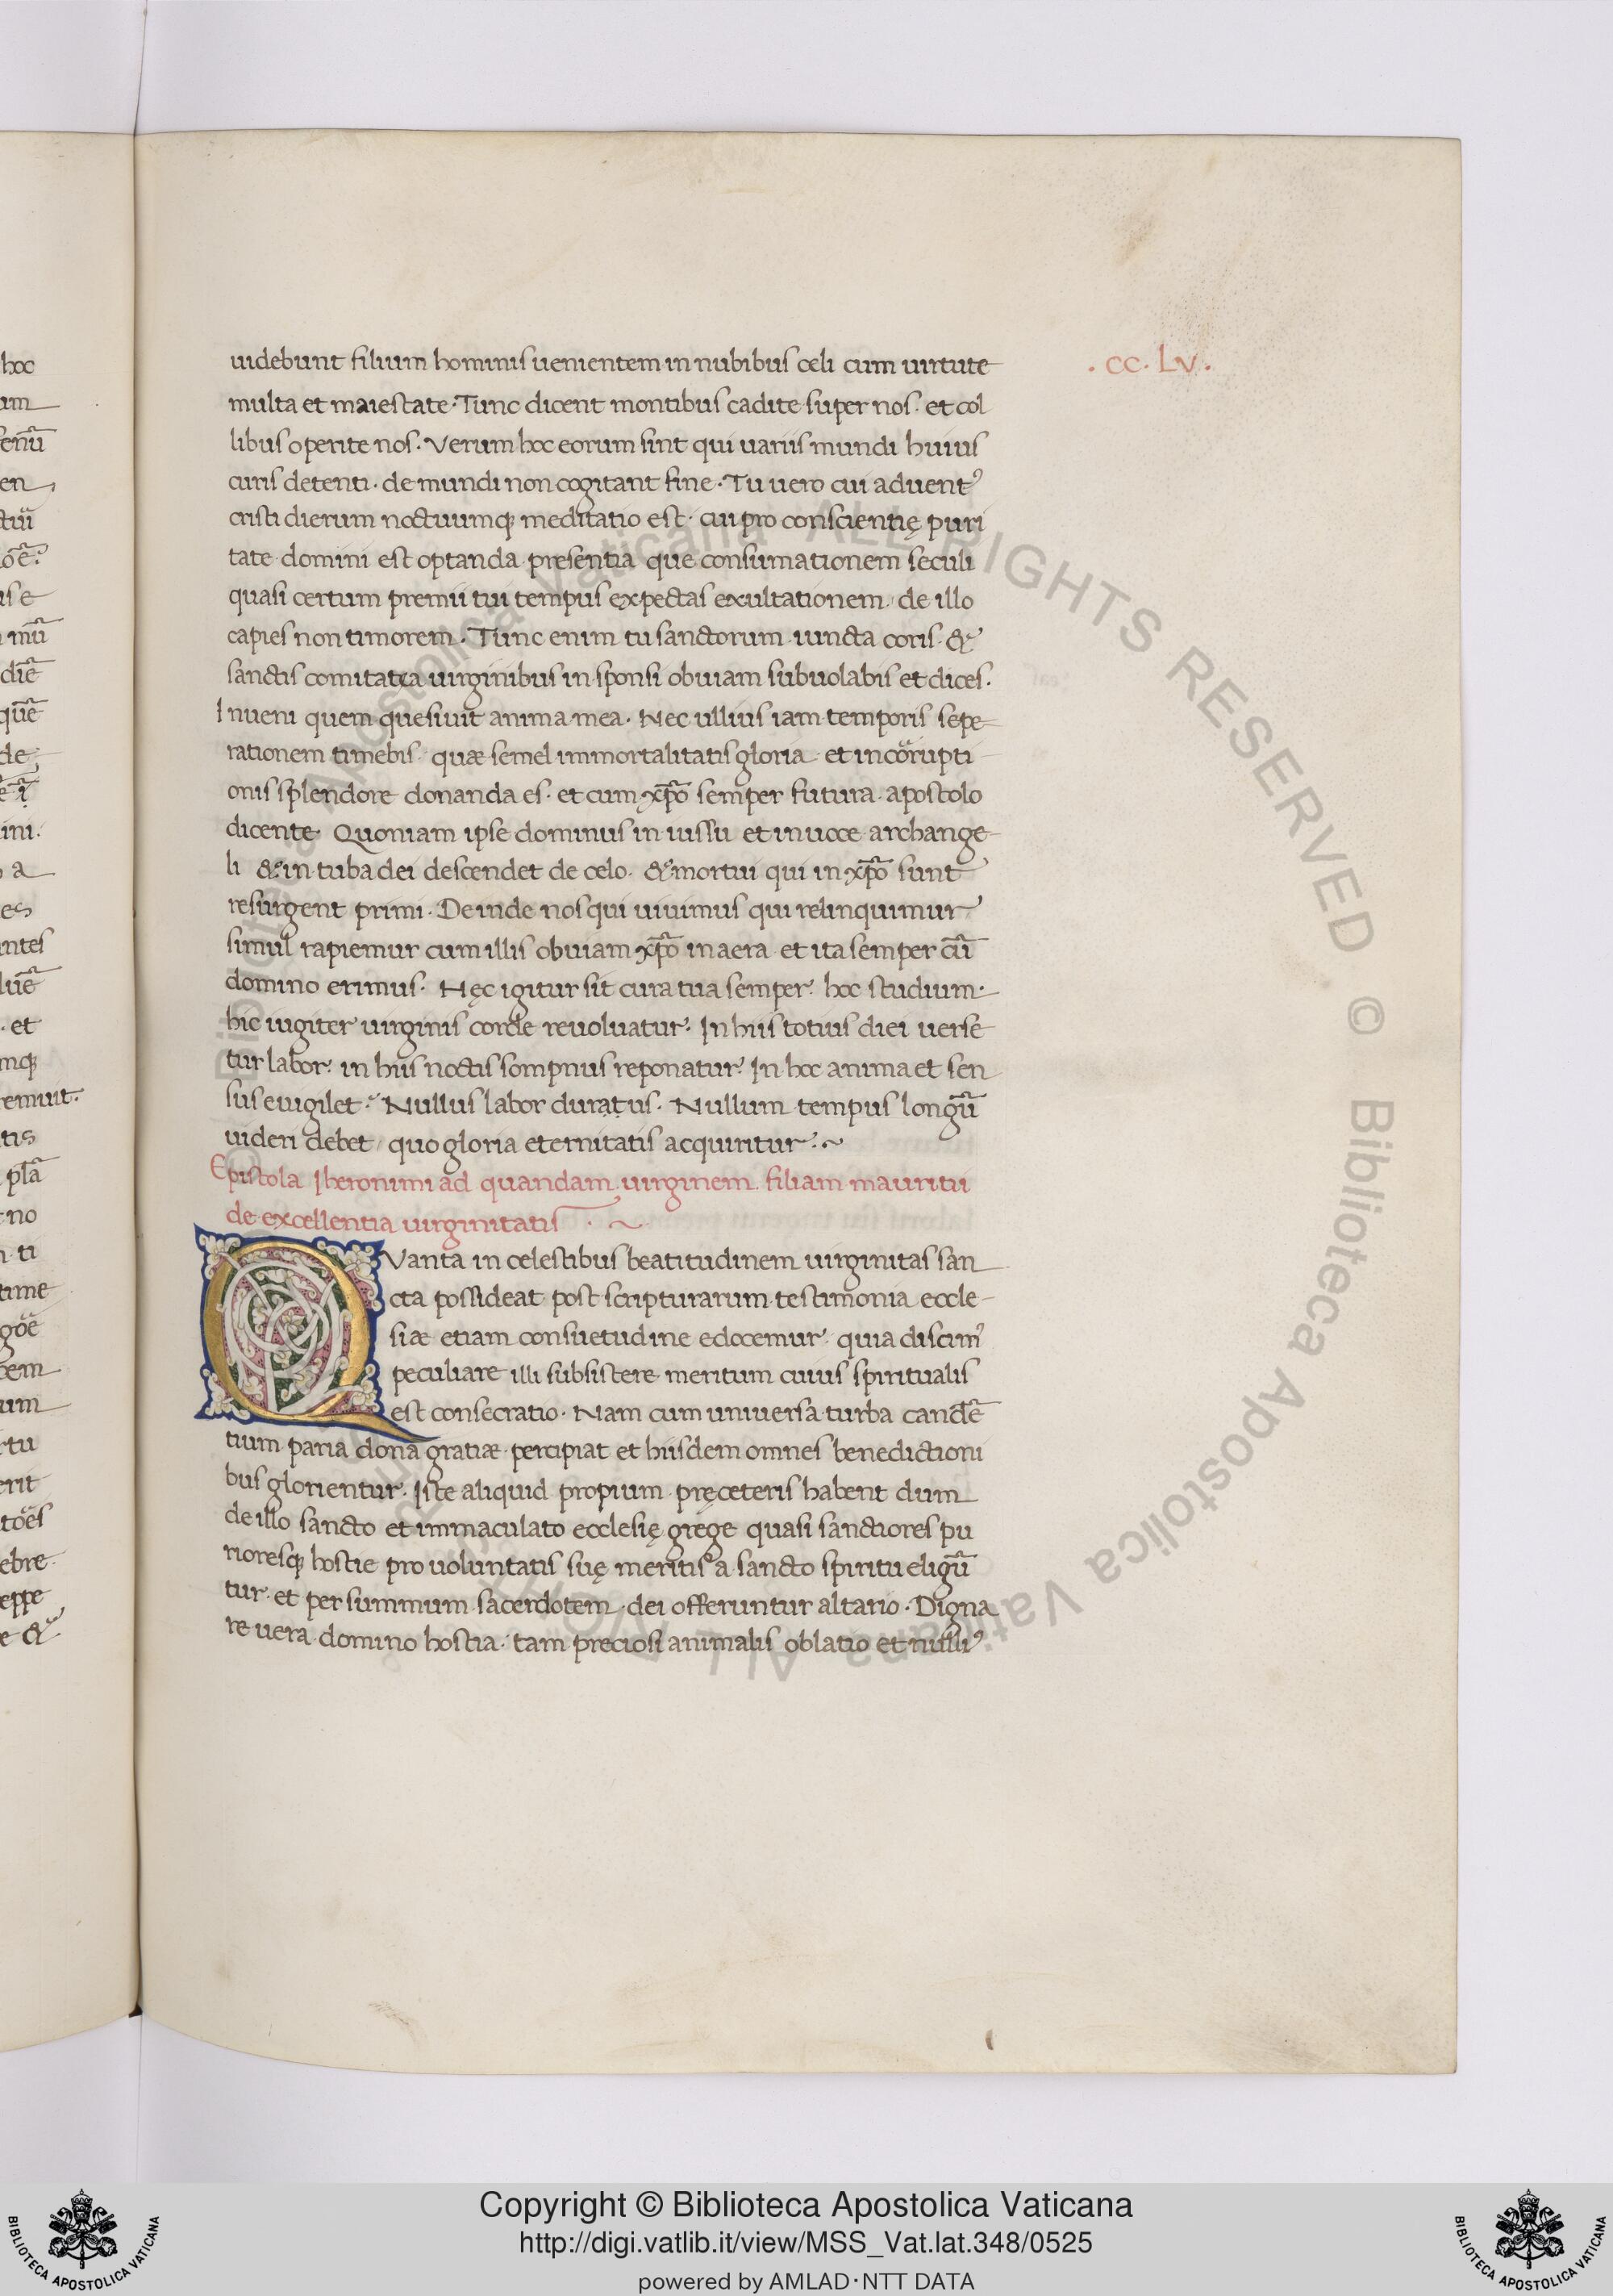 uidebunt filium hominis uenientem in nubibus celi cum uirtute
. cc. Lv .
multa et maiestate · Tunc dicent montibus cadite super nos · et col
libus operite nos · Verum hoc eorum sint qui uariis mundi huius
curis detenti · de mundi non cogitant fine · Tu uero cui aduentꝰ
cristi dierum noctuumqꝫ meditatio est · cui pro conscientię puri
tate domini est optanda presentia que consumationem seculi
quasi certum premii tui tempus expectas exultationem · de illo
capies non timorem · Tunc enim tu sanctorum iuncta coris · &
sanctis comitata uirginibus in sponsi obuiam subuolabis et dices ·
Inueni quem quesiuit anima mea · Nec ullius iam temporis sepe
rationem timebis · quæ semel immortalitatis gloria · et incorrupti
onis splendore donanda es · et cum xp̄o semper futura · apostolo
dicente · Quoniam ipse dominus in iussu et in uoce archange
li & in tuba dei descendet de celo · & mortui qui in xp̄o sunt
resurgent primi · Deinde nos qui uiuimus qui relinquimur
simul rapiemur cum illis obuiam xp̄o in aera et ita semper cū
domino erimus · Hęc igitur sit cura tua semper · hoc studium ·
hic iugiter uirginis corde reuoluatur · In hiis totius diei uerse
tur labor · in hiis noctis sompnus reponatur · In hoc anima et sen
sus euigilet · Nullus labor duratus · Nullum tempus longū
uideri debet / quo gloria eternitatis acquiritur · ~
Epistola Iheronimi ad quandam uirginem filiam mauritii
de excellentia uirginitatis · ~
QVanta in celestibus beatitudinem uirginitas san
cta possideat post scripturarum testimonia eccle-
siæ etiam consuetudine edocemur · quia discimꝰ
peculiare illi subsistere meritum cuius spiritualis
est consecratio · Nam cum uniuersa turba candē
tium paria dona gratiæ percipiat et hiisdem omnes benedictioni
bus glorientur · Iste aliquid propium pręceteris habent dum
de illo sancto et immaculato ecclesię grege quasi sanctiores pu
rioresqꝫ hostie pro uoluntatis suę meritis a sancto spiritu eligū
tur · et per summum sacerdotem · dei offeruntur altario · Digna
re uera domino hostia · tam preciosi animalis oblatio et nulliꝰ
Copyright © Biblioteca Apostolica Vaticana
http://digi.vatlib.it/view/MSS_Vat.lat.348/0525
powered by AMLAD·NTT DATA